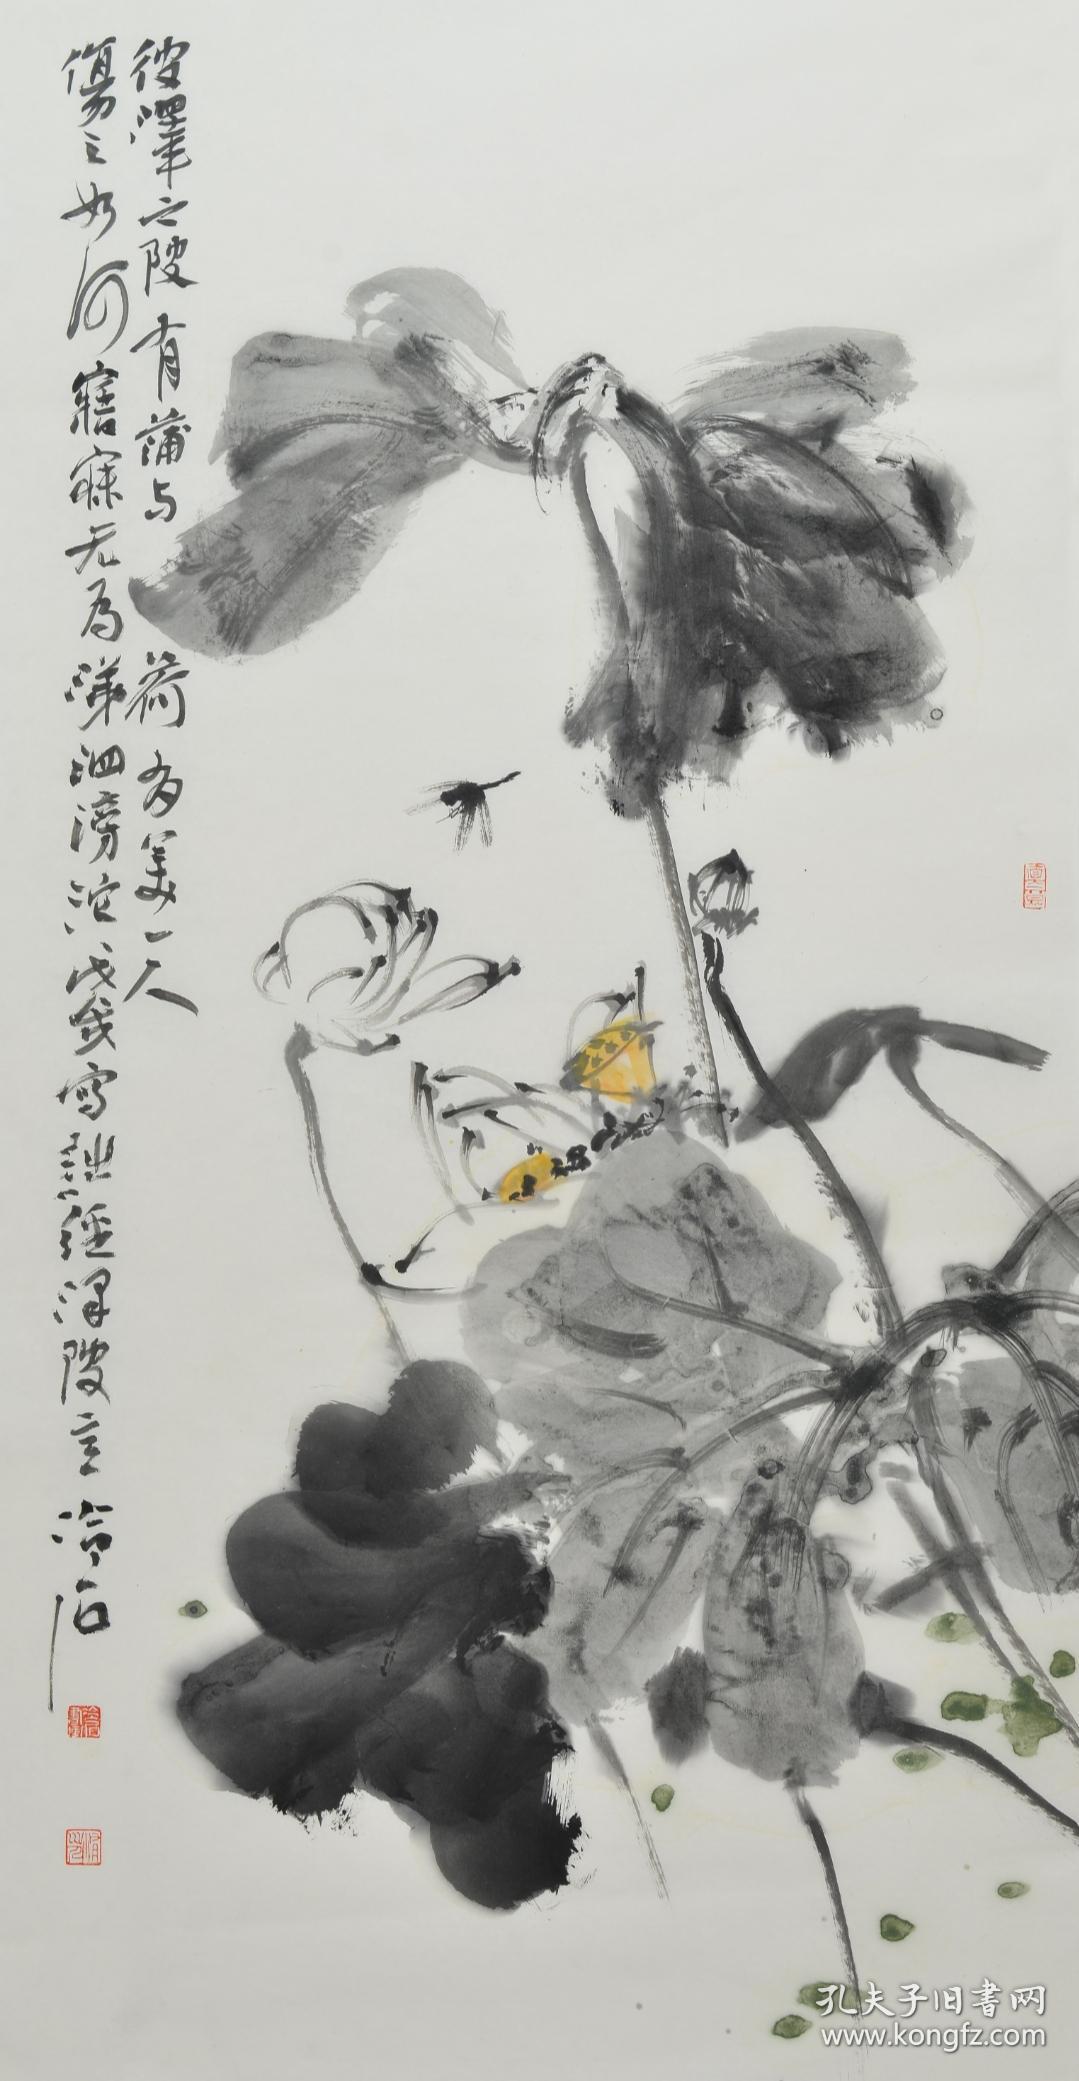 彼澤之陂有蒲与荷有美一人
傷之如何寤寐无为涕泗滂沱戊戌写詩經澤陂意冷石
孔夫子旧書网
www.kongfz.com